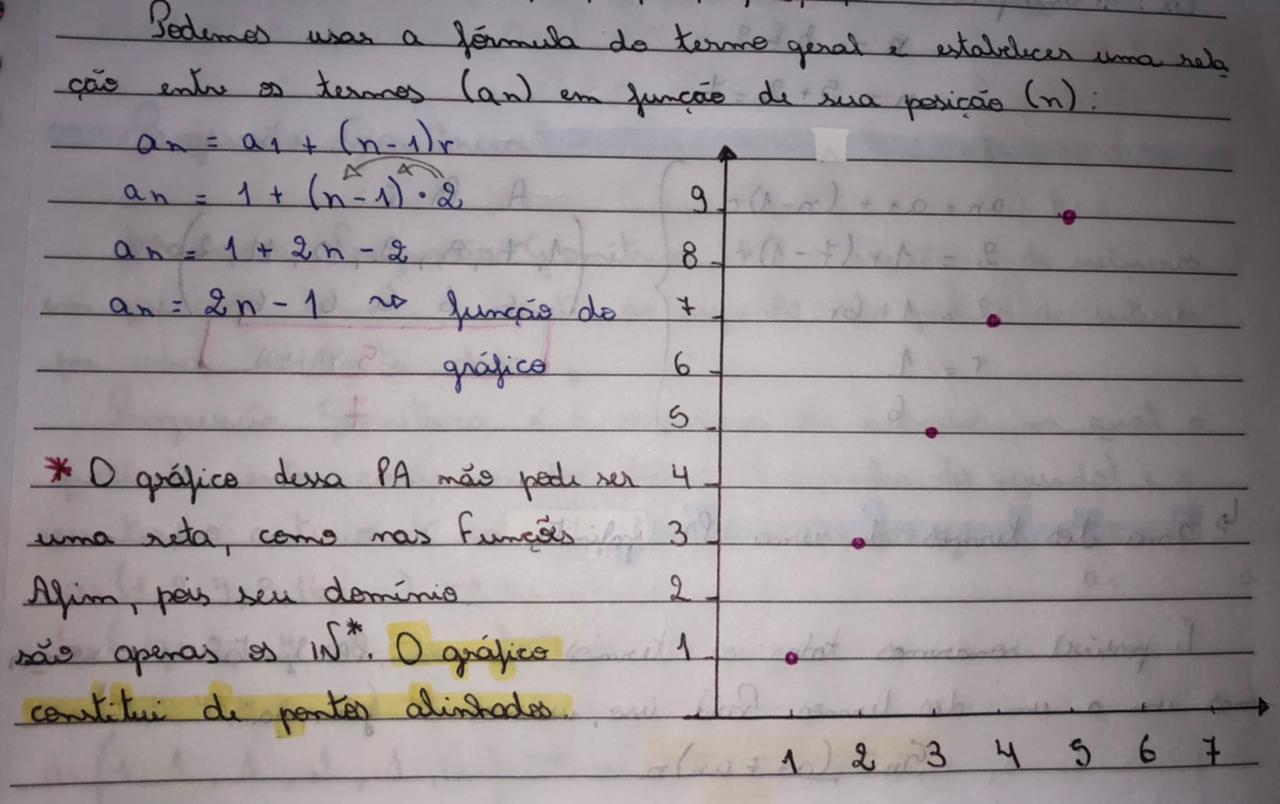 Podemos usar a fórmula do termo geral e estabelecer uma rela
ção entre os termos (an) em função de sua posição (n):
an = a1 + (n-1)r
an = 1 + (n-1) · 2
an = 1 + 2n - 2
an = 2n - 1 ⇝ função do
gráfico
* O gráfico dessa PA não pode ser
uma reta, como nas Funções
Afim, pois seu domínio
são apenas os IN*. O gráfico
constitui de pontos alinhados.
9
8
7
6
5
4
3
2
1
1 2 3 4 5 6 7